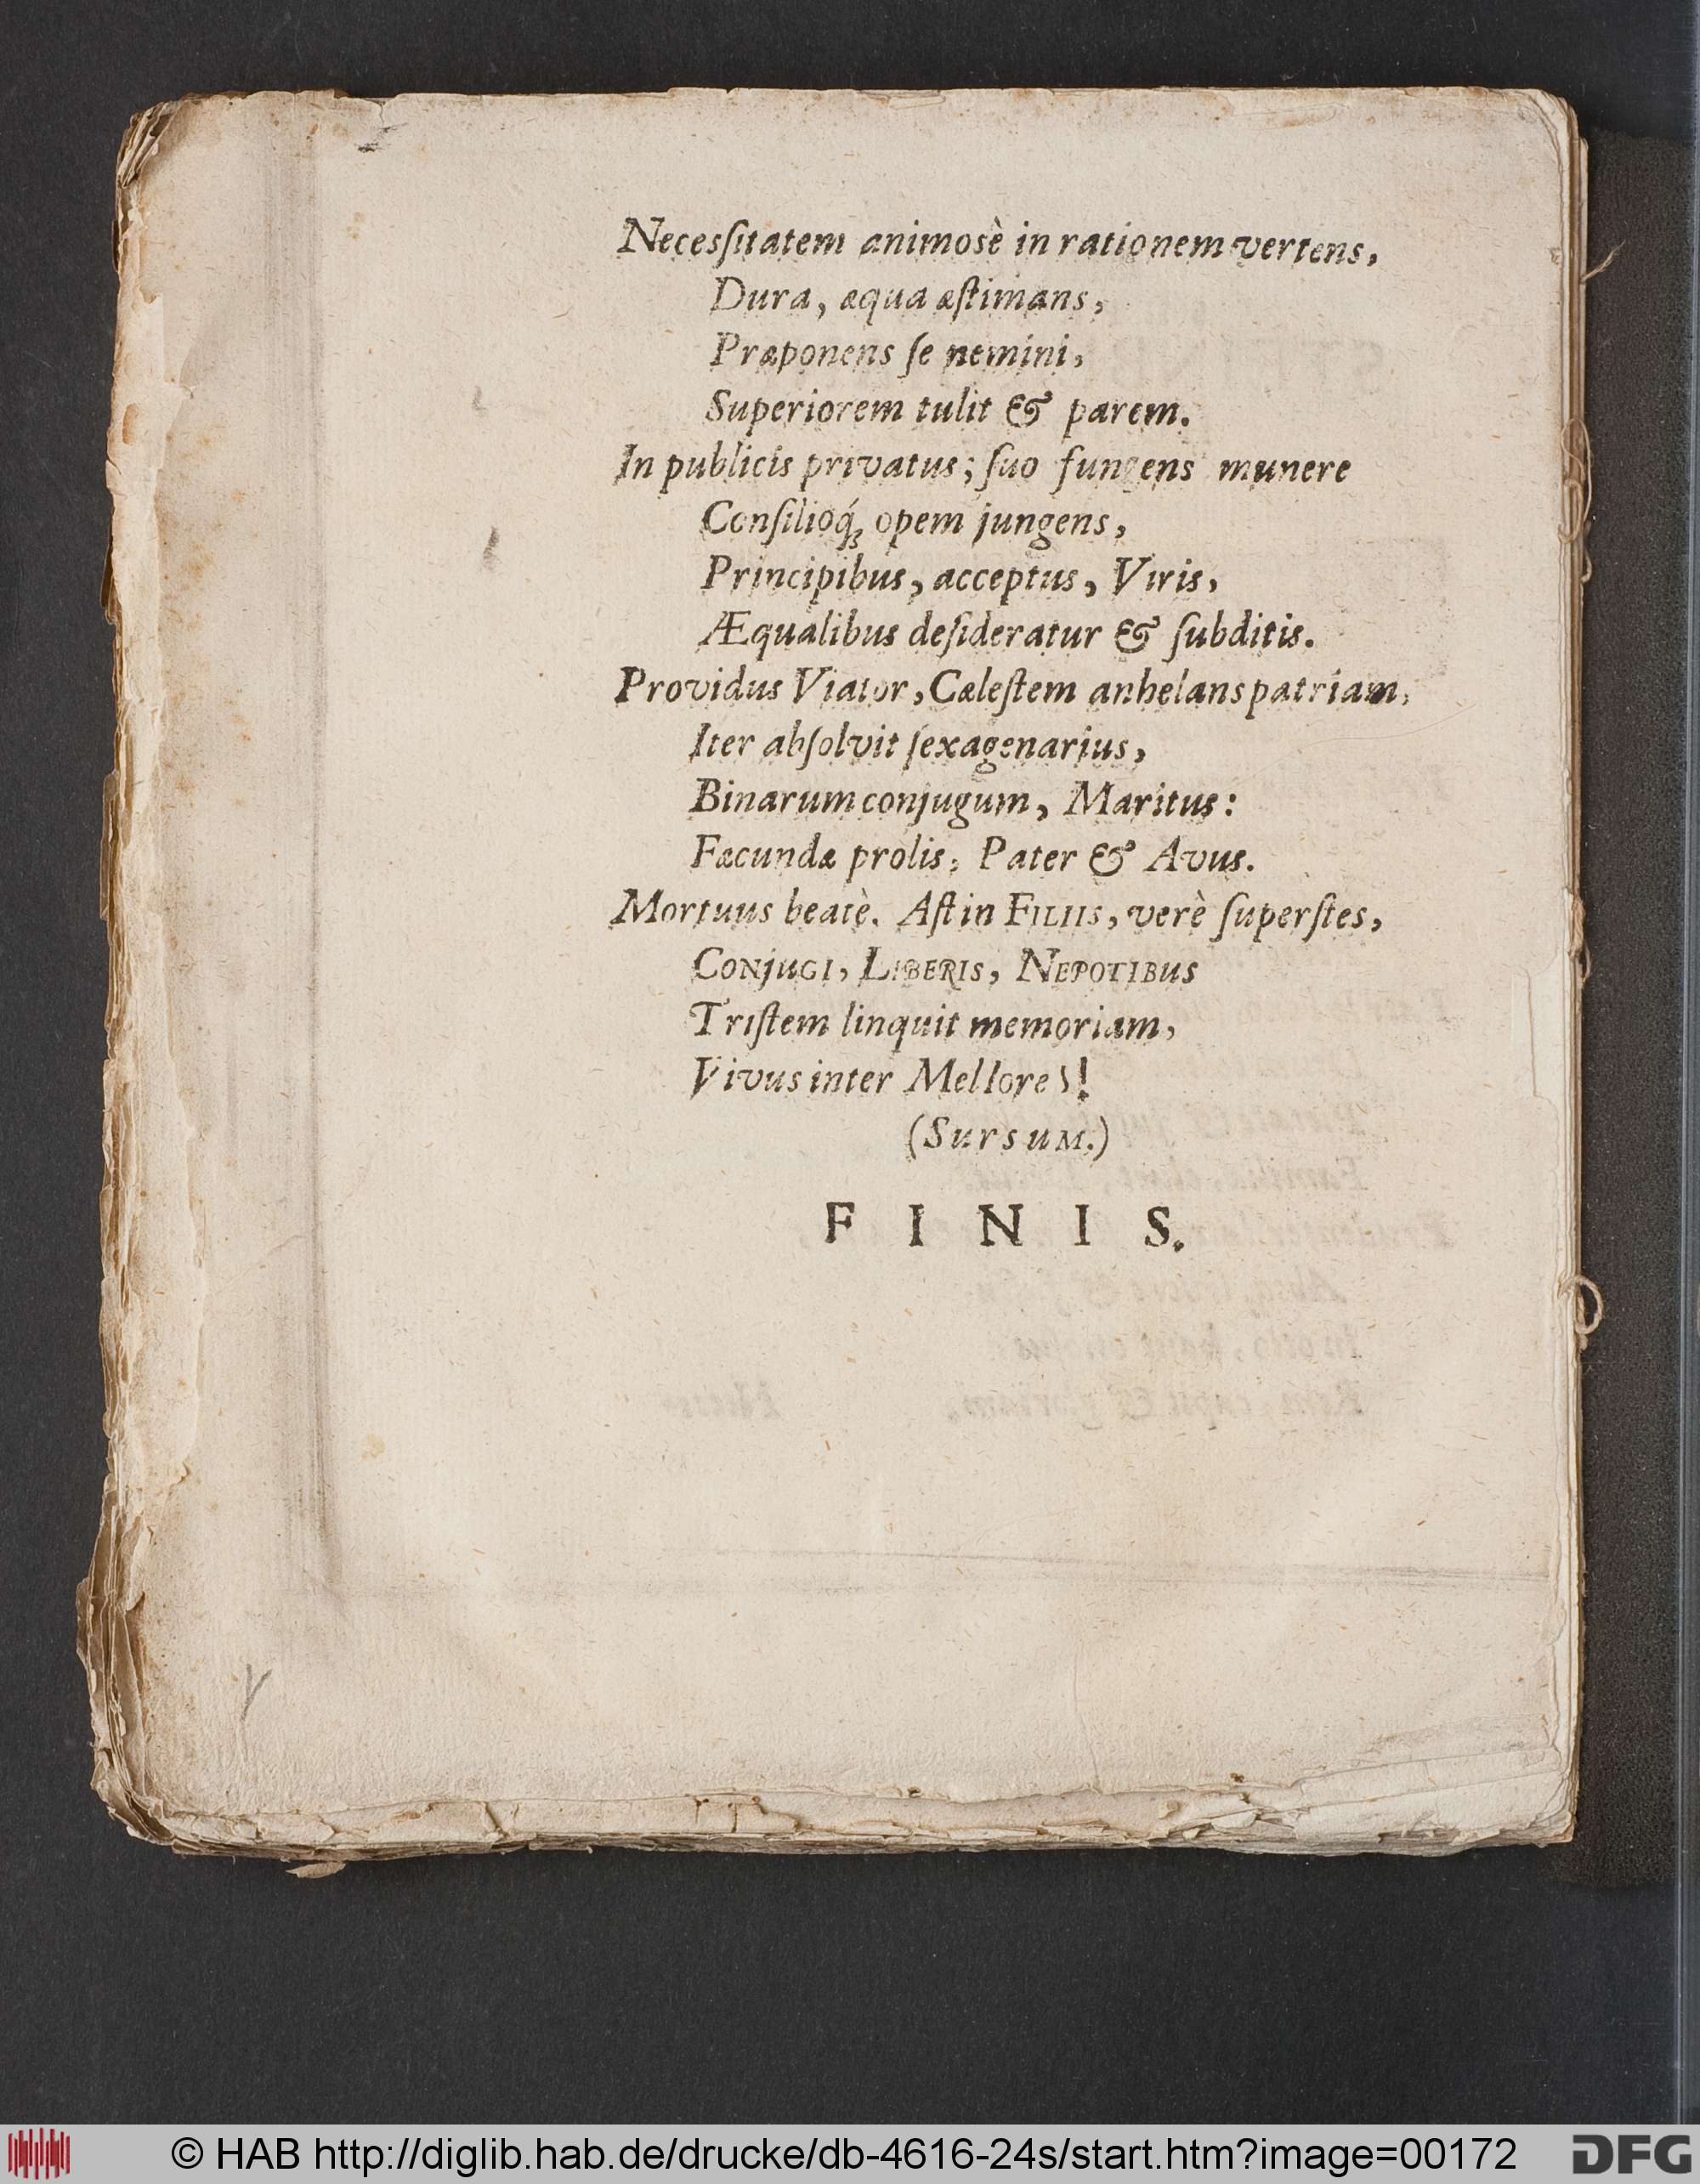 Necesſitatem animosè in rationem vertens,
Dura, æqua æſtimans,
Præponens ſe nemini,
Superiorem tulit & parem.
In publicis privatus; ſuo fungens munere
Conſilioq́ꝫ opem jungens,
Principibus, acceptus, Viris,
Æqualibus deſideratur & ſubditis.
Providus Viator, Cæleſtem anhelans patriam,
Iter abſolvit ſexagenarius,
Binarum conjugum, Maritus:
Fæcundæ prolis, Pater & Avus.
Mortuus beatè. Aſt in FILIIS, verè ſuperſtes,
CONJUGI, LIBERIS, NEPOTIBUS
Triſtem linquit memoriam,
Vivus inter Mellores!
(SURSUM.)
FINIS.
© HAB http://diglib.hab.de/drucke/db-4616-24s/start.htm?image=00172
DFG